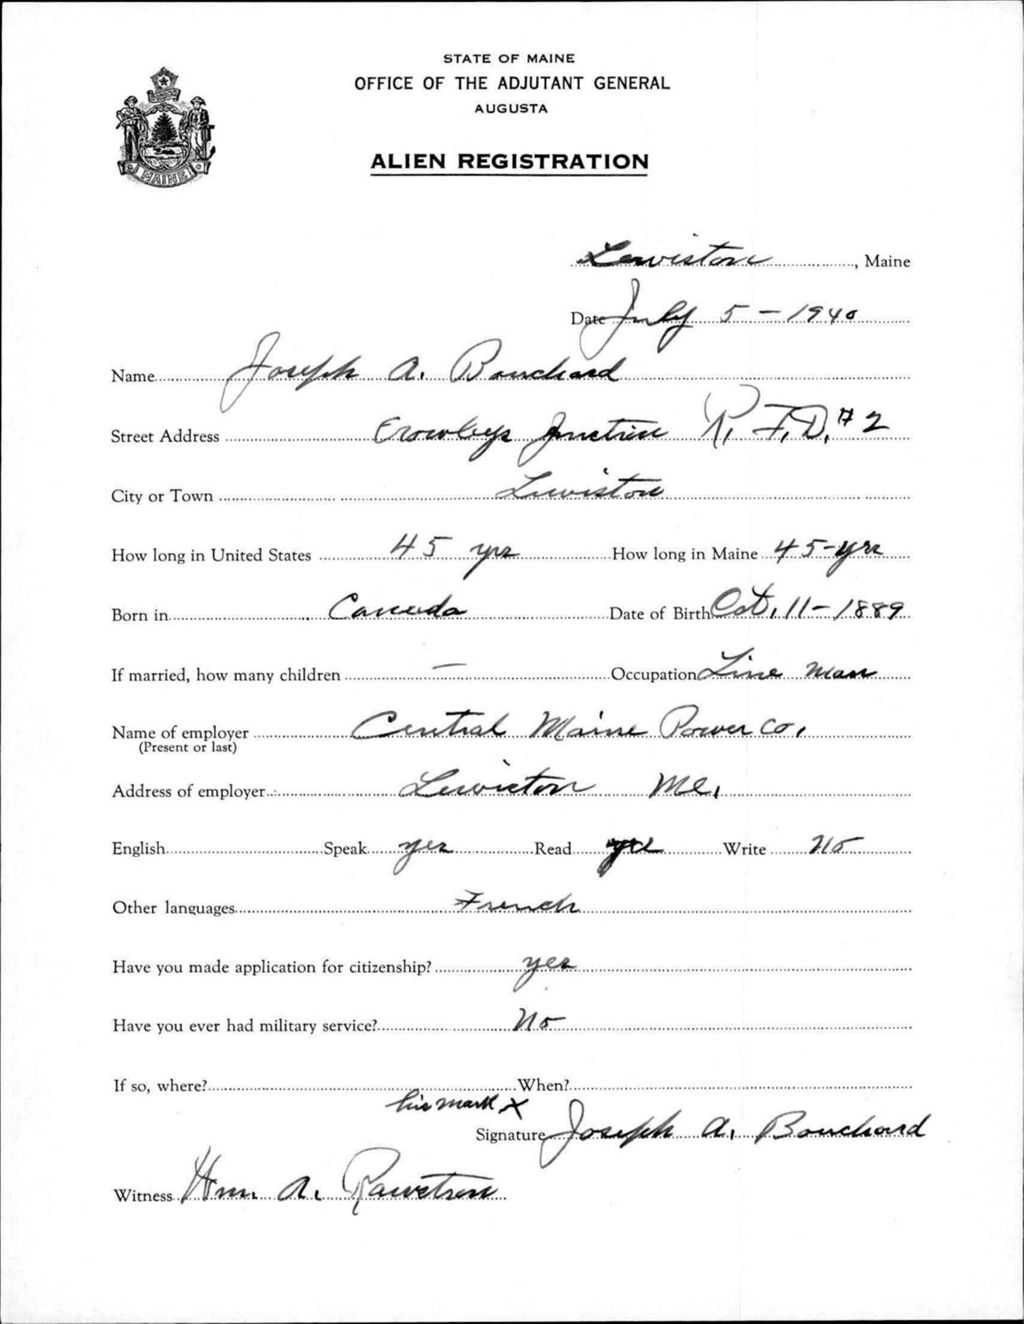 STATE OF MAINE
OFFICE OF THE ADJUTANT GENERAL
AUGUSTA
ALIEN REGISTRATION
MAINE
Lewiston, Maine
Date July 5-1940
Name Joseph A. Bouchard
Street Address Crowleys Junction R.F.D. #2
City or Town Lewiston
How long in United States 45 yrs How long in Maine 45-yrs
Born in Canada Date of Birth Oct. 11-1889
If married, how many children — Occupation Line man
Name of employer Central Maine Power Co.
(Present or last)
Address of employer Lewiston Me.
English Speak yes Read yes Write No
Other languages French
Have you made application for citizenship? yes
Have you ever had military service? No
If so, where? When?
his mark X
Signature Joseph A. Bouchard
Witness Wm. A. Rawstron